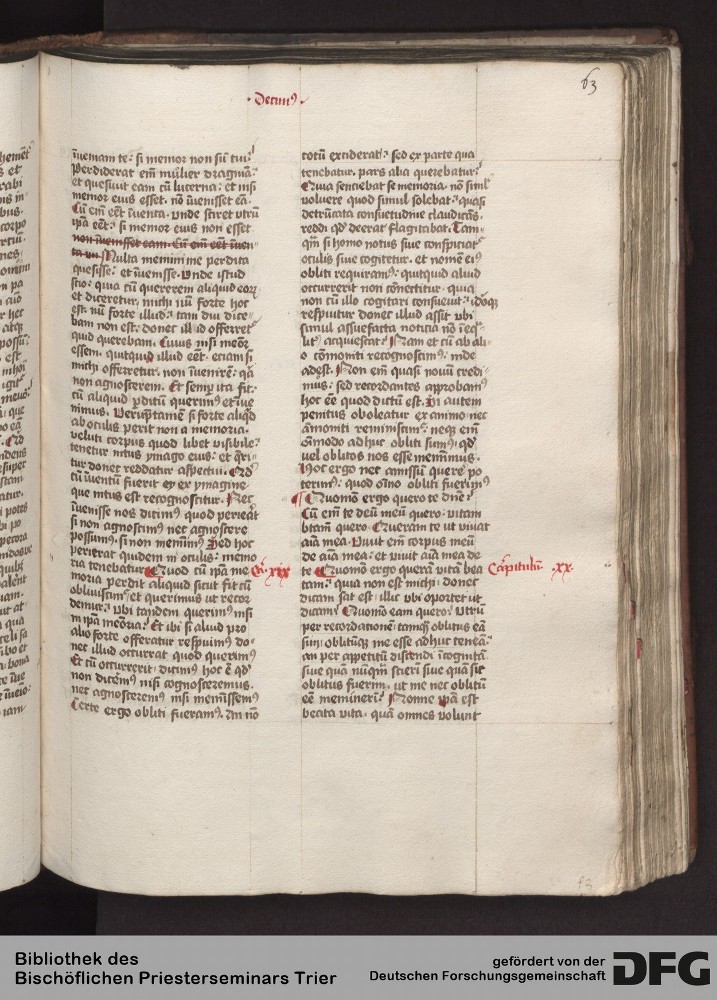 ·Decimꝰ·
63
īueniam te: si memor non sim tui:
Perdiderat em̄ mulier dragmā:
et quesiuit eam cū lucerna: et nisi
memor eius esset. nō īuenisset eā.
Cū em̄ eēt īuenta. vnde sciret vtrū
ipā eēt: si memor eius non esset
non īuenisset eam. Cū em̄ eēt īuen-
ta Multa memini me perdita
quesisse: et īuenisse. Vnde istud
scio: quia cū quererem aliquid eoꝝ
et diceretur michi nū forte hoc
est. nū forte illud: tam diu dice-
bam non est: donec illud offerret᷑
quid querebam. Cuius nisi meōr
essem. quitquid illud eēt. eciam si
michi offerretur. non īuenirē: qꝛ
non agnoscerem. Et semp ita fit.
cū aliquid pditū querimꝰ et īue
nimus. Veruptamen si forte aliqd
ab oculis perit non a memoria.
veluti corpus quod libet visibile:
tenetur intus ymago eius: et qri-
tur donec reddatur aspectui. Qd
cū īuentū fuerit ex ymagine
que intus est recognoscitur. Nec
īuenisse nos dicimꝰ quod perierat
si non agnoscimꝰ nec agnoscere
possumꝰ. si non meminimꝰ Sed hoc
perierat quidem in oculis: memo
ria tenebatur Quod cū ipā me
Ca. xix
moria perdit aliquid sicut fit cū
obliuiscimꝰ et querimus ut recor
demur: vbi tandem querimꝰ nisi
in ipā memoria: Et ibi si aliud pro
alio forte offeratur respuimꝰ do-
nec illud occurrat quod querimꝰ
Et cū occurrerit: dicimꝰ hoc ē qd
non dicemꝰ nisi cognosceremus.
nec agnosceremꝰ nisi meminissemꝰ
Certe ergo obliti fueramꝰ. An nō
totū exciderat: sed ex parte qua
tenebatur. pars alia querebatur:
Quia senciebat se memoria. nō siml
voluere quod simul solebat: quasi
detrūcata consuetudine claudicās.
reddi qd deerat flagitabat. Tam-
qm̄ si homo notus siue conspiciat᷑
oculis siue cogitetur. et nomē eiꝰ
obliti requiramꝰ: quitquid aliud
occurrerit non cōnectitur. quia
non cū illo cogitari consueuit: idoqꝫ
respuitur donec illud assit vbi
simul assuefacta noticia nō īeq-
lit acquiescat: Nam et cū ab ali-
o cōmoniti recognoscimꝰ: inde
adest. Non em̄ quasi nouū credi-
mus: sed recordantes approbamꝰ
hoc eē quod dictū est. Si autem
penitus oboleatur ex animo nec
āmoniti reminiscimꝰ: neqꝫ em̄
ōimodo adhuc obliti sumꝰ. qd
vel oblitos nos esse meminimus.
Hoc ergo nec amissū querere po
terimꝰ: quod oīno obliti fuerimꝰ
Quomō ergo quero te dnē:
Cū em̄ te deū meū quero. vitam
btam quero. Queram te ut viuat
aīa mea. Viuit em̄ corpus meū
de aīa mea: et viuit aīa mea de
te Quomō ergo querā vitā bea
Capitulū ·xx·
tam: quia non est michi: donec
dicam sat est: illic vbi oportet ut
dicam: Quomō eam quero: Vtrū
per recordationē tamqꝫ oblitus eā
sim: oblitūqꝫ me esse adhuc teneā:
an per appetitū discendi īcognitā.
siue quā nūqꝫ scierī siue quā sic
oblitus fuerim. ut me nec oblitū
eē meminerī: Nonne ipā est
beata vita. quā omnes volunt
Bibliothek des
Bischöflichen Priesterseminars Trier
gefördert von der
Deutschen Forschungsgemeinschaft
DFG